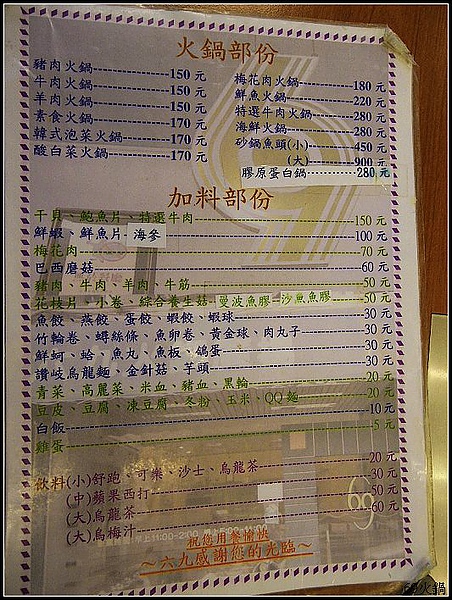 火鍋部份
豬肉火鍋----------150元
牛肉火鍋----------150元
羊肉火鍋----------150元
素食火鍋----------170元
韓式泡菜火鍋------170元
酸白菜火鍋--------170元
梅花肉火鍋--------180元
鮮魚火鍋----------220元
特選牛肉火鍋------280元
海鮮火鍋----------280元
砂鍋魚頭(小)------450元
(大)------900元
膠原蛋白鍋········280元
加料部份
干貝、鮑魚片、特選牛肉----------150元
鮮蝦、鮮魚片、海參----------100元
梅花肉----------70元
巴西磨菇----------60元
豬肉、牛肉、羊肉、牛筋----------50元
花枝片、小卷、綜合養生菇、曼波魚膠、沙魚魚膠-----50元
魚餃、燕餃、蛋餃、蝦餃、蝦球----------30元
竹輪卷、蟳絲條、魚卵卷、黃金球、肉丸子-----30元
鮮蚵、蛤、魚丸、魚板、鴿蛋----------30元
讚岐烏龍麵、金針菇、芋頭----------30元
青菜、高麗菜、米血、豬血、黑輪----------20元
豆皮、豆腐、凍豆腐、冬粉、玉米、QQ麵-----20元
白飯----------10元
雞蛋----------5元
飲料(小)舒跑、可樂、沙士、烏龍茶----------20元
(中)蘋果西打----------30元
(大)烏龍茶----------50元
(大)烏梅汁----------60元
祝您用餐愉快
～六九感謝您的光臨～
69火鍋